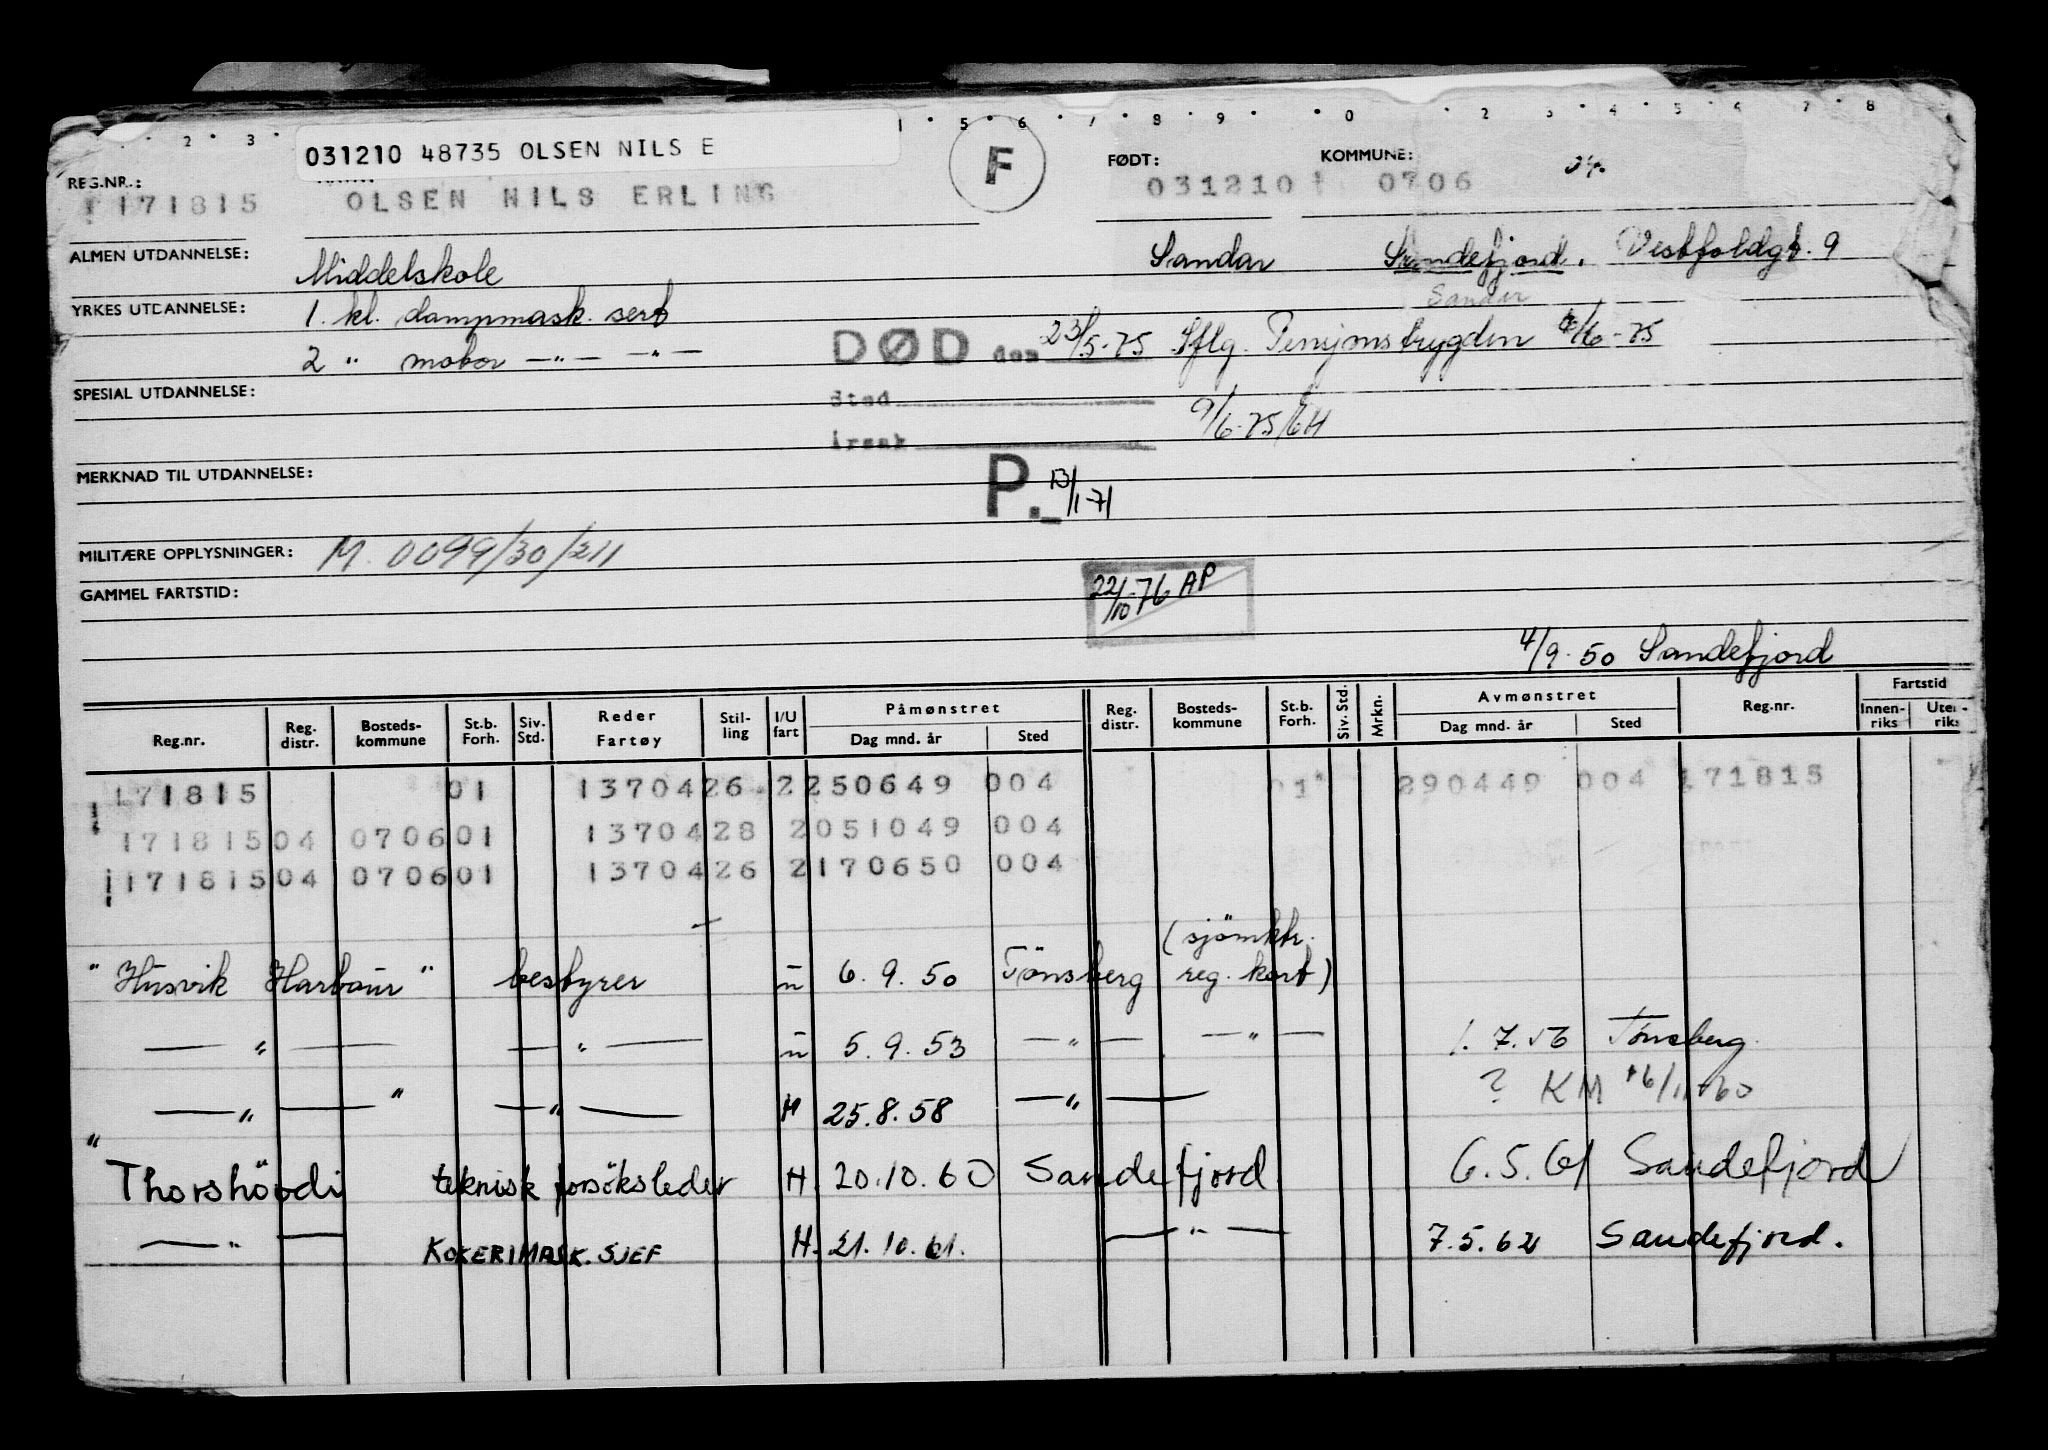 2 3 5 6 7 8 9 0 2 3 4 5 6 7 8
031210 48735 OLSEN NILS E
F
FØDT: KOMMUNE: 04.
REG.NR.:
171815 OLSEN NILS ERLING 031210 0706
ALMEN UTDANNELSE: Middelskole Sandar Sandefjord. Vestfoldgt. 9
Sandar
YRKES UTDANNELSE: 1. kl. dampmask. sert
2 " motor —"— —"— DØD den 23/5-75 Iflg. Pensjonstrygden 6/6-75
SPESIAL UTDANNELSE: Sted 9/6-75/GH
årsak
MERKNAD TIL UTDANNELSE: P. 13/1-71
MILITÆRE OPPLYSNINGER: M. 0099/30/211
GAMMEL FARTSTID: 22/10-76 AP
4/9-50 Sandefjord
Reg.nr. Reg. distr. Bosteds-kommune St.b. Forh. Siv. Std. Reder Fartøy Stil-ling I/U fart Påmønstret Dag mnd. år Sted Reg. distr. Bosteds-kommune St.b. Forh. Siv. Std. Mrkn. Avmønstret Dag mnd. år Sted Reg.nr. Fartstid Innen-riks Uten-riks
171815 01 1370426 2 250649 004 01 290449 004 171815
171815 04 0706 01 1370428 2 051049 004
171815 04 0706 01 1370426 2 170650 004
"Husvik Harbour" bestyrer u 6.9.50 Tønsberg (sjömktr. reg. kort)
—"— —"— u 5.9.53 —"— —"— 1.7.56 Tönsberg
—"— " —"— H 25.8.58 —"— ? KM 16/11-60
"Thorshövdi teknisk forsöksleder H. 20.10.60 Sandefjord 6.5.61 Sandefjord
—"— KOKERIMASK. SJEF H. 21.10.61. —"— 7.5.62 Sandefjord.